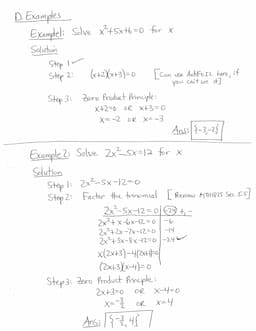 D. Examples
Example 1: Solve x²+5x+6=0 for x
Solution
Step 1 ✓
Step 2: (x+2)(x+3)=0 [Can use AntiFOIL here, if you can't see it]
Step 3: Zero Product Principle:
x+2=0 OR x+3=0
x=-2 OR x=-3
Ans: {-3,-2}
Example 2: Solve 2x²-5x=12 for x
Solution
Step 1: 2x²-5x-12=0
Step 2: Factor the trinomial [Review
2x²-5x-12=0
2x²+x-6x-12=0 -6
2x²+2x-7x-12=0 -14
2x²+3x-8x-12=0 -24 ✓
x(2x+3)-4(2x+3)=0
(2x+3)(x-4)=0
Step 3: Zero Product Principle:
2x+3=0 OR x-4=0
x=-3/2 OR x=4
Ans: {-3/2, 4}